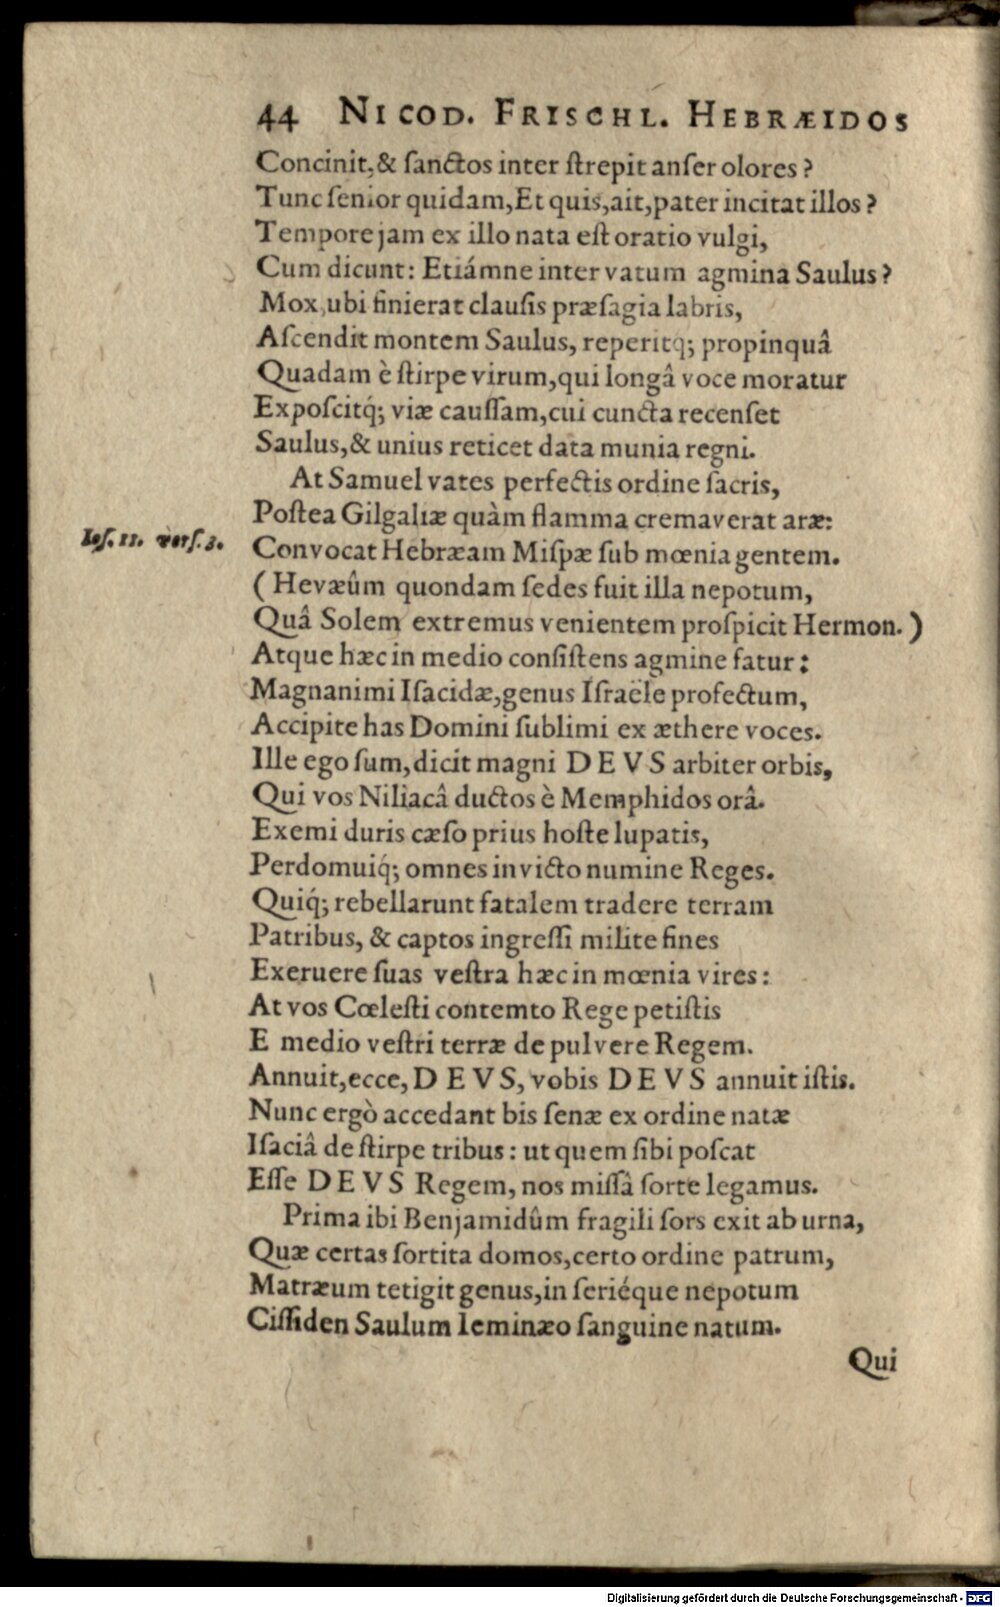 44 NICOD. FRISCHL. HEBRÆIDOS
Concinit, & ſanctos inter ſtrepit anſer olores?
Tunc ſenior quidam, Et quis, ait, pater incitat illos?
Tempore jam ex illo nata eſt oratio vulgi,
Cum dicunt: Etiámne inter vatum agmina Saulus?
Mox, ubi finierat clauſis præſagia labris,
Aſcendit montem Saulus, reperitq; propinquâ
Quadam è ſtirpe virum, qui longâ voce moratur
Expoſcitq́; viæ cauſſam, cui cuncta recenſet
Saulus, & unius reticet data munia regni.
At Samuel vates perfectis ordine ſacris,
Poſtea Gilgaliæ quàm flamma cremaverat aræ:
Ioſ. 11. verſ. 3.
Convocat Hebræam Miſpæ ſub mœnia gentem.
(Hevæûm quondam ſedes fuit illa nepotum,
Quâ Solem extremus venientem proſpicit Hermon.)
Atque hæc in medio conſiſtens agmine fatur:
Magnanimi Iſacidæ, genus Iſraële profectum,
Accipite has Domini ſublimi ex æthere voces.
Ille ego ſum, dicit magni DEVS arbiter orbis,
Qui vos Niliacâ ductos è Memphidos orâ.
Exemi duris cæſo prius hoſte lupatis,
Perdomuiq́; omnes invicto numine Reges.
Quiq́; rebellarunt fatalem tradere terram
Patribus, & captos ingreſſi milite fines
Exeruere ſuas veſtra hæc in mœnia vires:
At vos Cœleſti contemto Rege petiſtis
E medio veſtri terræ de pulvere Regem.
Annuit, ecce, DEVS, vobis DEVS annuit iſtis.
Nunc ergò accedant bis ſenæ ex ordine natæ
Iſaciâ de ſtirpe tribus: ut quem ſibi poſcat
Eſſe DEVS Regem, nos miſſâ ſorte legamus.
Prima ibi Benjamidûm fragili ſors exit ab urna,
Quæ certas ſortita domos, certo ordine patrum,
Matræum tetigit genus, in ſeriéque nepotum
Ciſſiden Saulum Ieminæo ſanguine natum.
Qui
Digitalisierung gefördert durch die Deutsche Forschungsgemeinschaft - DFG